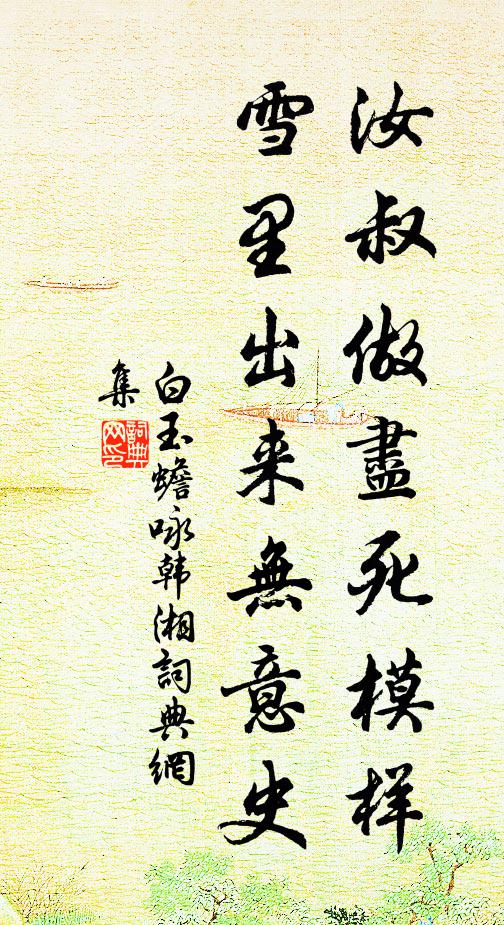 汝叔做盡死模样
雪里出来無意史
白玉蟾咏韩湘詞典網
集
詞典
网印